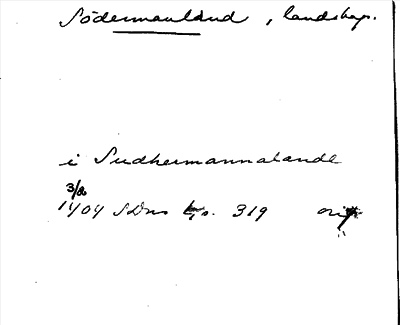 Södermanland, landskap.
i Sudhermannalande
3/8
1404 SDns 1, s. 319 orig